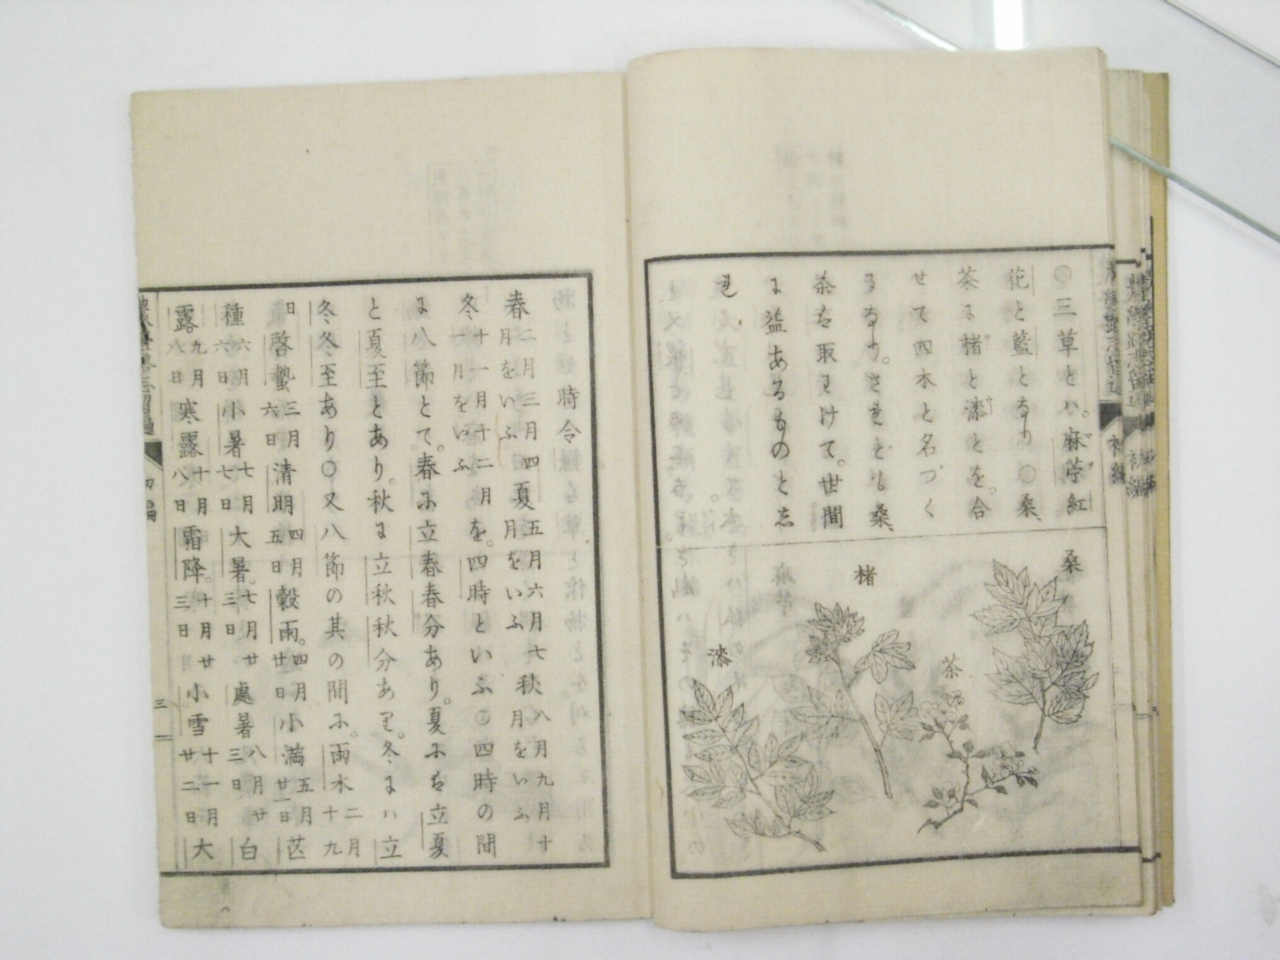 ◯三草とハ。麻苧紅
花と藍となり◯桑、
茶る楮と漆とを。合
せて四木と名づく
るなり。されども桑、
茶を取りけて。世間
に益あるものと志
れ
桑
楮
茶
漆
初編
時令
春二月三月四月をいふ夏五月六月七月をいふ秋八月九月十月をいふ
冬十一月十二月一月をいふを。四時といふ◯四時の間
に八節とて。春に立春春分あり。夏にも立夏
と夏至とあり。秋に立秋秋分あり。冬にハ立
冬冬至あり◯又八節の其の間に。雨水二月十九
日啓蟄三月六日清明四月五日穀雨。四月廿日小満五月廿一日芒
種六月六日小暑七月七日大暑。七月廿三日處暑八月廿三日白
露。九月八日寒露十月八日霜降。十月廿三日小雪十一月廿二日大
初編
三